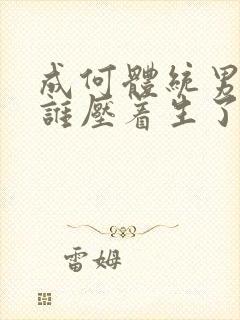 成何體統男
誰壓着生了
雷姆